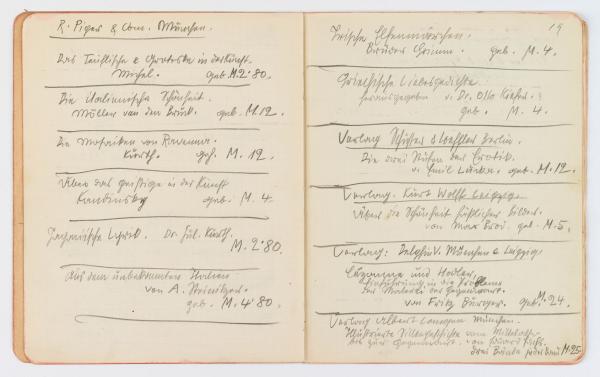 R. Piper & Com. München.
Das Teuflische & Groteske in der Kunst.
Michel. geb. M. 2·80.
Die italienische Schönheit.
Möller van den Bruck. geb. M. 12.
Die Mosaiken von Ravenna.
Kurth. geh. M. 12.
Über das geistige in der Kunst
Kandinsky geb. M. 4.
Japanische Lyrik. Dr. Jul. Kurth.
M. 2·80.
Aus dem unbekannten Italien
von A. Steinitzer.
geb. M. 4·80.
19
Irische Elfenmärchen.
Brüder Grimm. geb. M. 4.
Griechische Liebesgedichte
herausgegeben v. Dr. Otto Kiefer.
geb. M. 4.
Verlag Schuster & Loeffler Berlin.
Die drei Stufen der Erotik.
v. Emil Lucka. geb. M. 12.
Verlag. Kurt Wolff Leipzig.
Über die Schönheit häßlicher Bilder.
von Max Brod. geb. M. 5.
Verlag: Delphinv. München & Leipzig.
Cézanne und Hodler,
Einführung in die Probleme
der Malerei der Gegenwart.
von Fritz Burger. geb. M. 24.
Verlag Albert Langen München.
Illustrierte Sittengeschichte vom Mittelalter
bis zur Gegenwart. von Eduard Fuchs.
drei Bände jeder Band M. 25